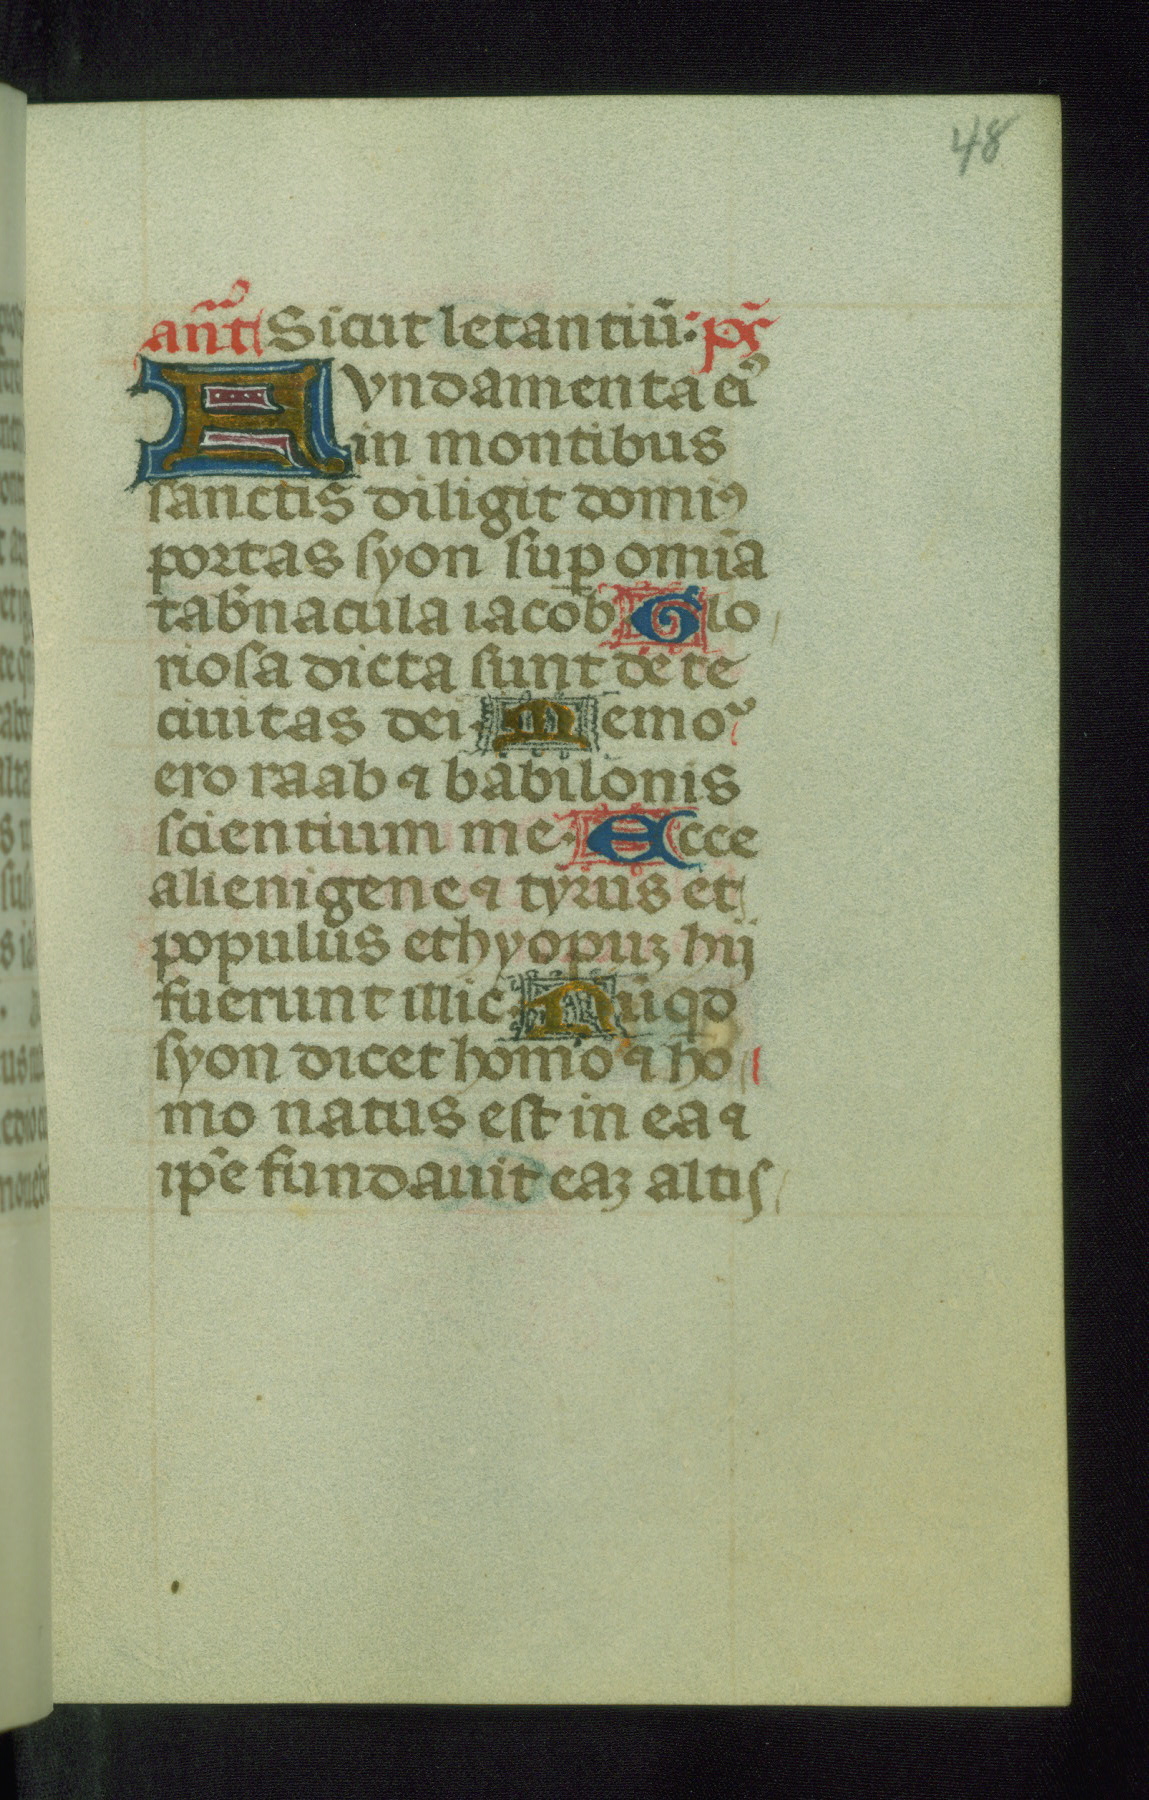 48
añt Sicut letantiū: ps̄
Fvndamenta eiꝰ
in montibus
sanctis diligit domiꝰ
portas syon sup omīa
tab̄nacula iacob Glo
riosa dicta sunt de te
ciuitas dei. Memoꝛ
ero raab ⁊ babilonis
scientium me. Ecce
alienigene ⁊ tyrus et
populus ethyopuꝫ hij
fuerunt illic. Nūqd
syon dicet homo ⁊ ho
mo natus est in ea ⁊
ip̄e fundauit eaꝫ altis